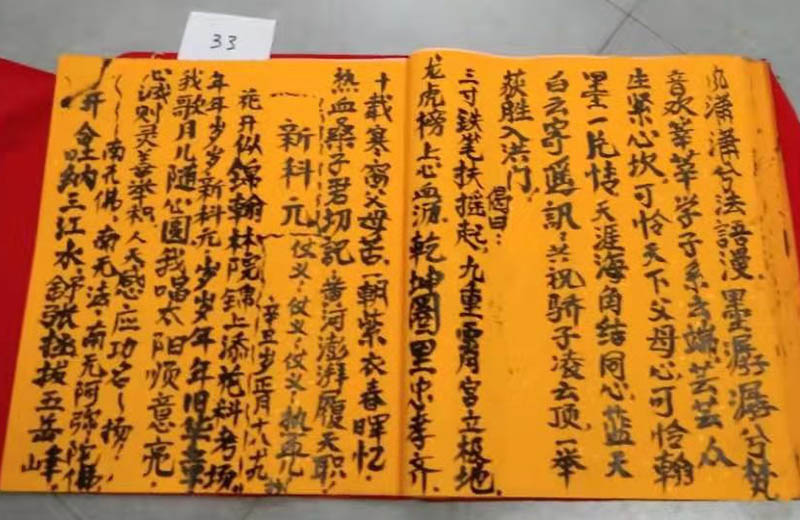 33
滿滿兮法語漫,墨潺潺兮梵
音欢莘莘学子系云端芸芸众
生紧心坎,可怜天下父母心可怜翰
墨一片情天涯海角结同心,蓝天
白云寄遥訊,共祝骄子凌云顶,一举
获胜入洪门。
偈曰:
三寸铁笔扶摇起,九重霄宫立极地
龙虎榜上心血源,乾坤圈里忠孝齐。
十载寒窗父母苦,一朝紫衣春晖忆,
热血桑子君切記,黄河澎湃履天职。
新科元
仗义,仗义,仗义,热
辛丑岁正月十八九
花开似锦翰林院,锦上添花科考场
年年岁岁新科元,少岁年年旧华章
我歌月儿随心圆,我唱太阳顺意亮
心诚则灵善举积,人天感应功名~扬,
南无佛,南无法,南无阿弥陀佛
开金口呐三江水,舒张拔五岳峰